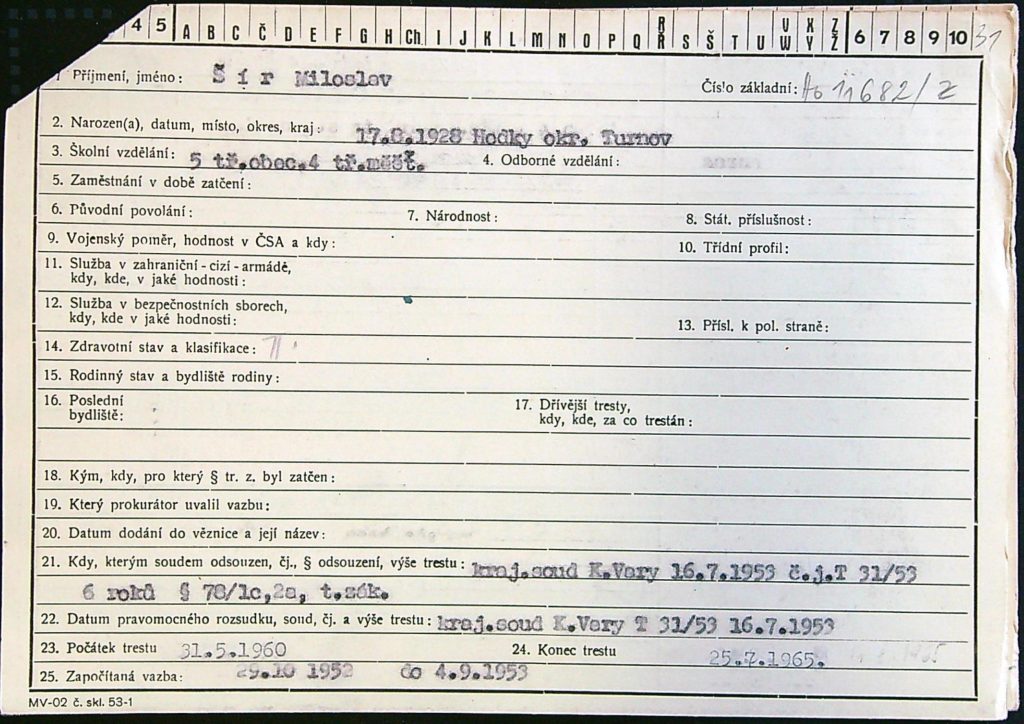 4 5 A B C Č D E F G H Ch I J K L M N O P Q R Ř S Š T U V W X Y Z Ž 6 7 8 9 10 31
Příjmení, jméno: Šír Miloslav
Číslo základní: Ao 11682/Z
2. Narozen(a), datum, místo, okres, kraj: 17.8.1928 Hodky okr. Turnov
3. Školní vzdělání: 5 tř.obec.4 tř.měšť. 4. Odborné vzdělání:
5. Zaměstnání v době zatčení:
6. Původní povolání: 7. Národnost: 8. Stát. příslušnost:
9. Vojenský poměr, hodnost v ČSA a kdy: 10. Třídní profil:
11. Služba v zahraniční - cizí - armádě,
kdy, kde, v jaké hodnosti:
12. Služba v bezpečnostních sborech,
kdy, kde v jaké hodnosti: 13. Přísl. k pol. straně:
14. Zdravotní stav a klasifikace:
15. Rodinný stav a bydliště rodiny:
16. Poslední
bydliště:
17. Dřívější tresty,
kdy, kde, za co trestán:
18. Kým, kdy, pro který § tr. z. byl zatčen:
19. Který prokurátor uvalil vazbu:
20. Datum dodání do věznice a její název:
21. Kdy, kterým soudem odsouzen, čj., § odsouzení, výše trestu: kraj.soud K.Vary 16.7.1953 č.j.T 31/53
6 roků § 78/1c,2a, t.zák.
22. Datum pravomocného rozsudku, soud, čj. a výše trestu: kraj.soud K.Vary T 31/53 16.7.1953
23. Počátek trestu 31.5.1960 24. Konec trestu 25.7.1965.
25. Započítaná vazba: 29.10 1952 do 4.9.1953
MV-02 č. skl. 53-1